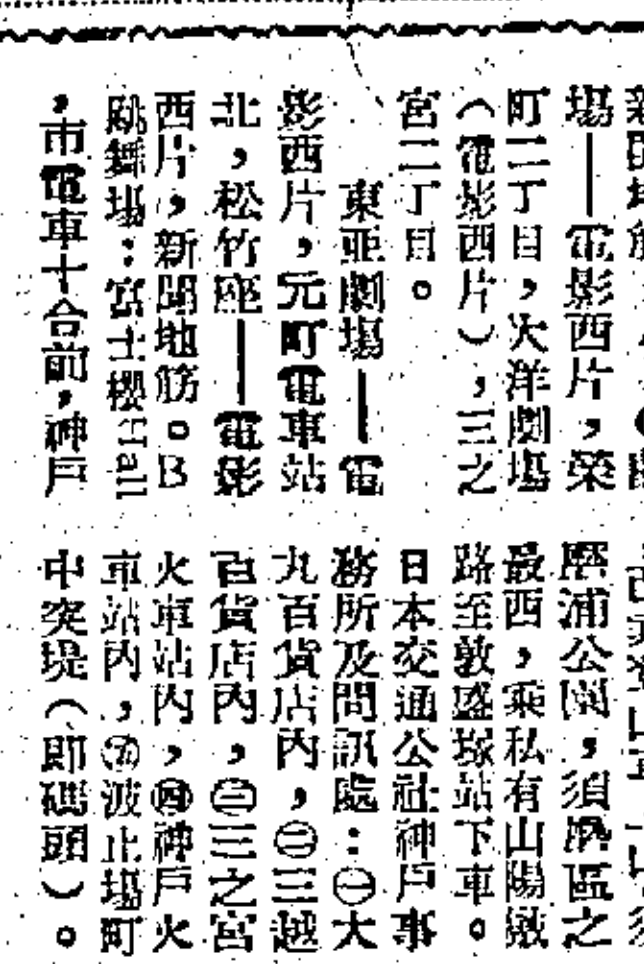 場——電影西片，榮
町二丁目，大洋劇場
（電影西片），三之
宮二丁目。
東亞劇場——電
影西片，元町電車站
北，松竹座——電影
西片，新開地筋。B
跳舞場：富士櫻Hall
，市電車十合前，神戶
磨浦公園，須磨區之
最西，乘私有山陽線
路至敦盛塚站下車。
日本交通公社神戶事
務所及問訊處：㊀大
丸百貨店內，㊁三越
百貨店內，㊂三之宮
火車站內，㊃神戶火
車站內，㊄波止場町
中突堤（即碼頭）。